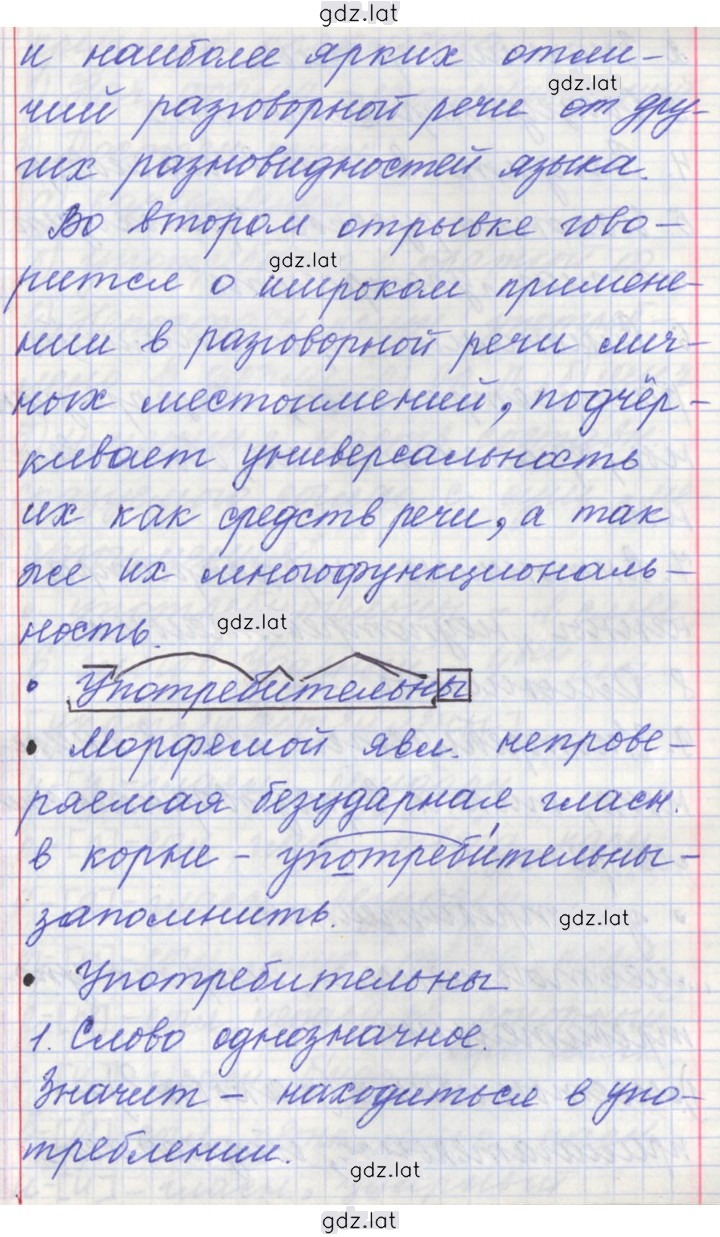 gdz.lat
и наиболее ярких отли-
gdz.lat
чий разговорной речи от дру-
гих разновидностей языка.
Во втором отрывке гово-
gdz.lat
рится о широком примене-
нии в разговорной речи лич-
ных местоимений, подчёр-
кивает универсальность
их как средств речи, а так
же их многофункциональ-
gdz.lat
ность.
• Употребительны
• Морфемой явл. непрове-
ряемая безударная гласн.
в корне - употребительны-
запомнить.
gdz.lat
• Употребительны
1. Слово однозначное.
Значит - находиться в упо-
треблении.
gdz.lat
gdz.lat